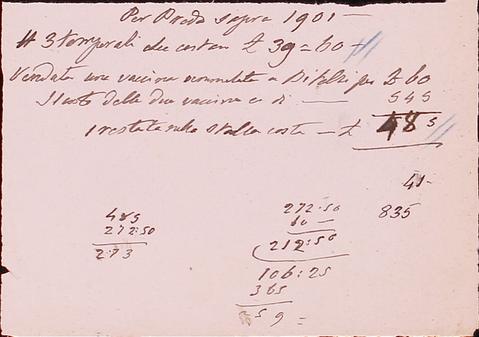 Per Preda sopra 1901 —
# 3 temporali che costan £ 39 = 60 —
Venduta una vaccina ammalata a per £ 60
Il costo delle due vaccine è di — 545
restata nella stalla costa — £ 485
41-
835
485
272:50
2:73
272:50
60 —
212:50
106:25
365
59 =